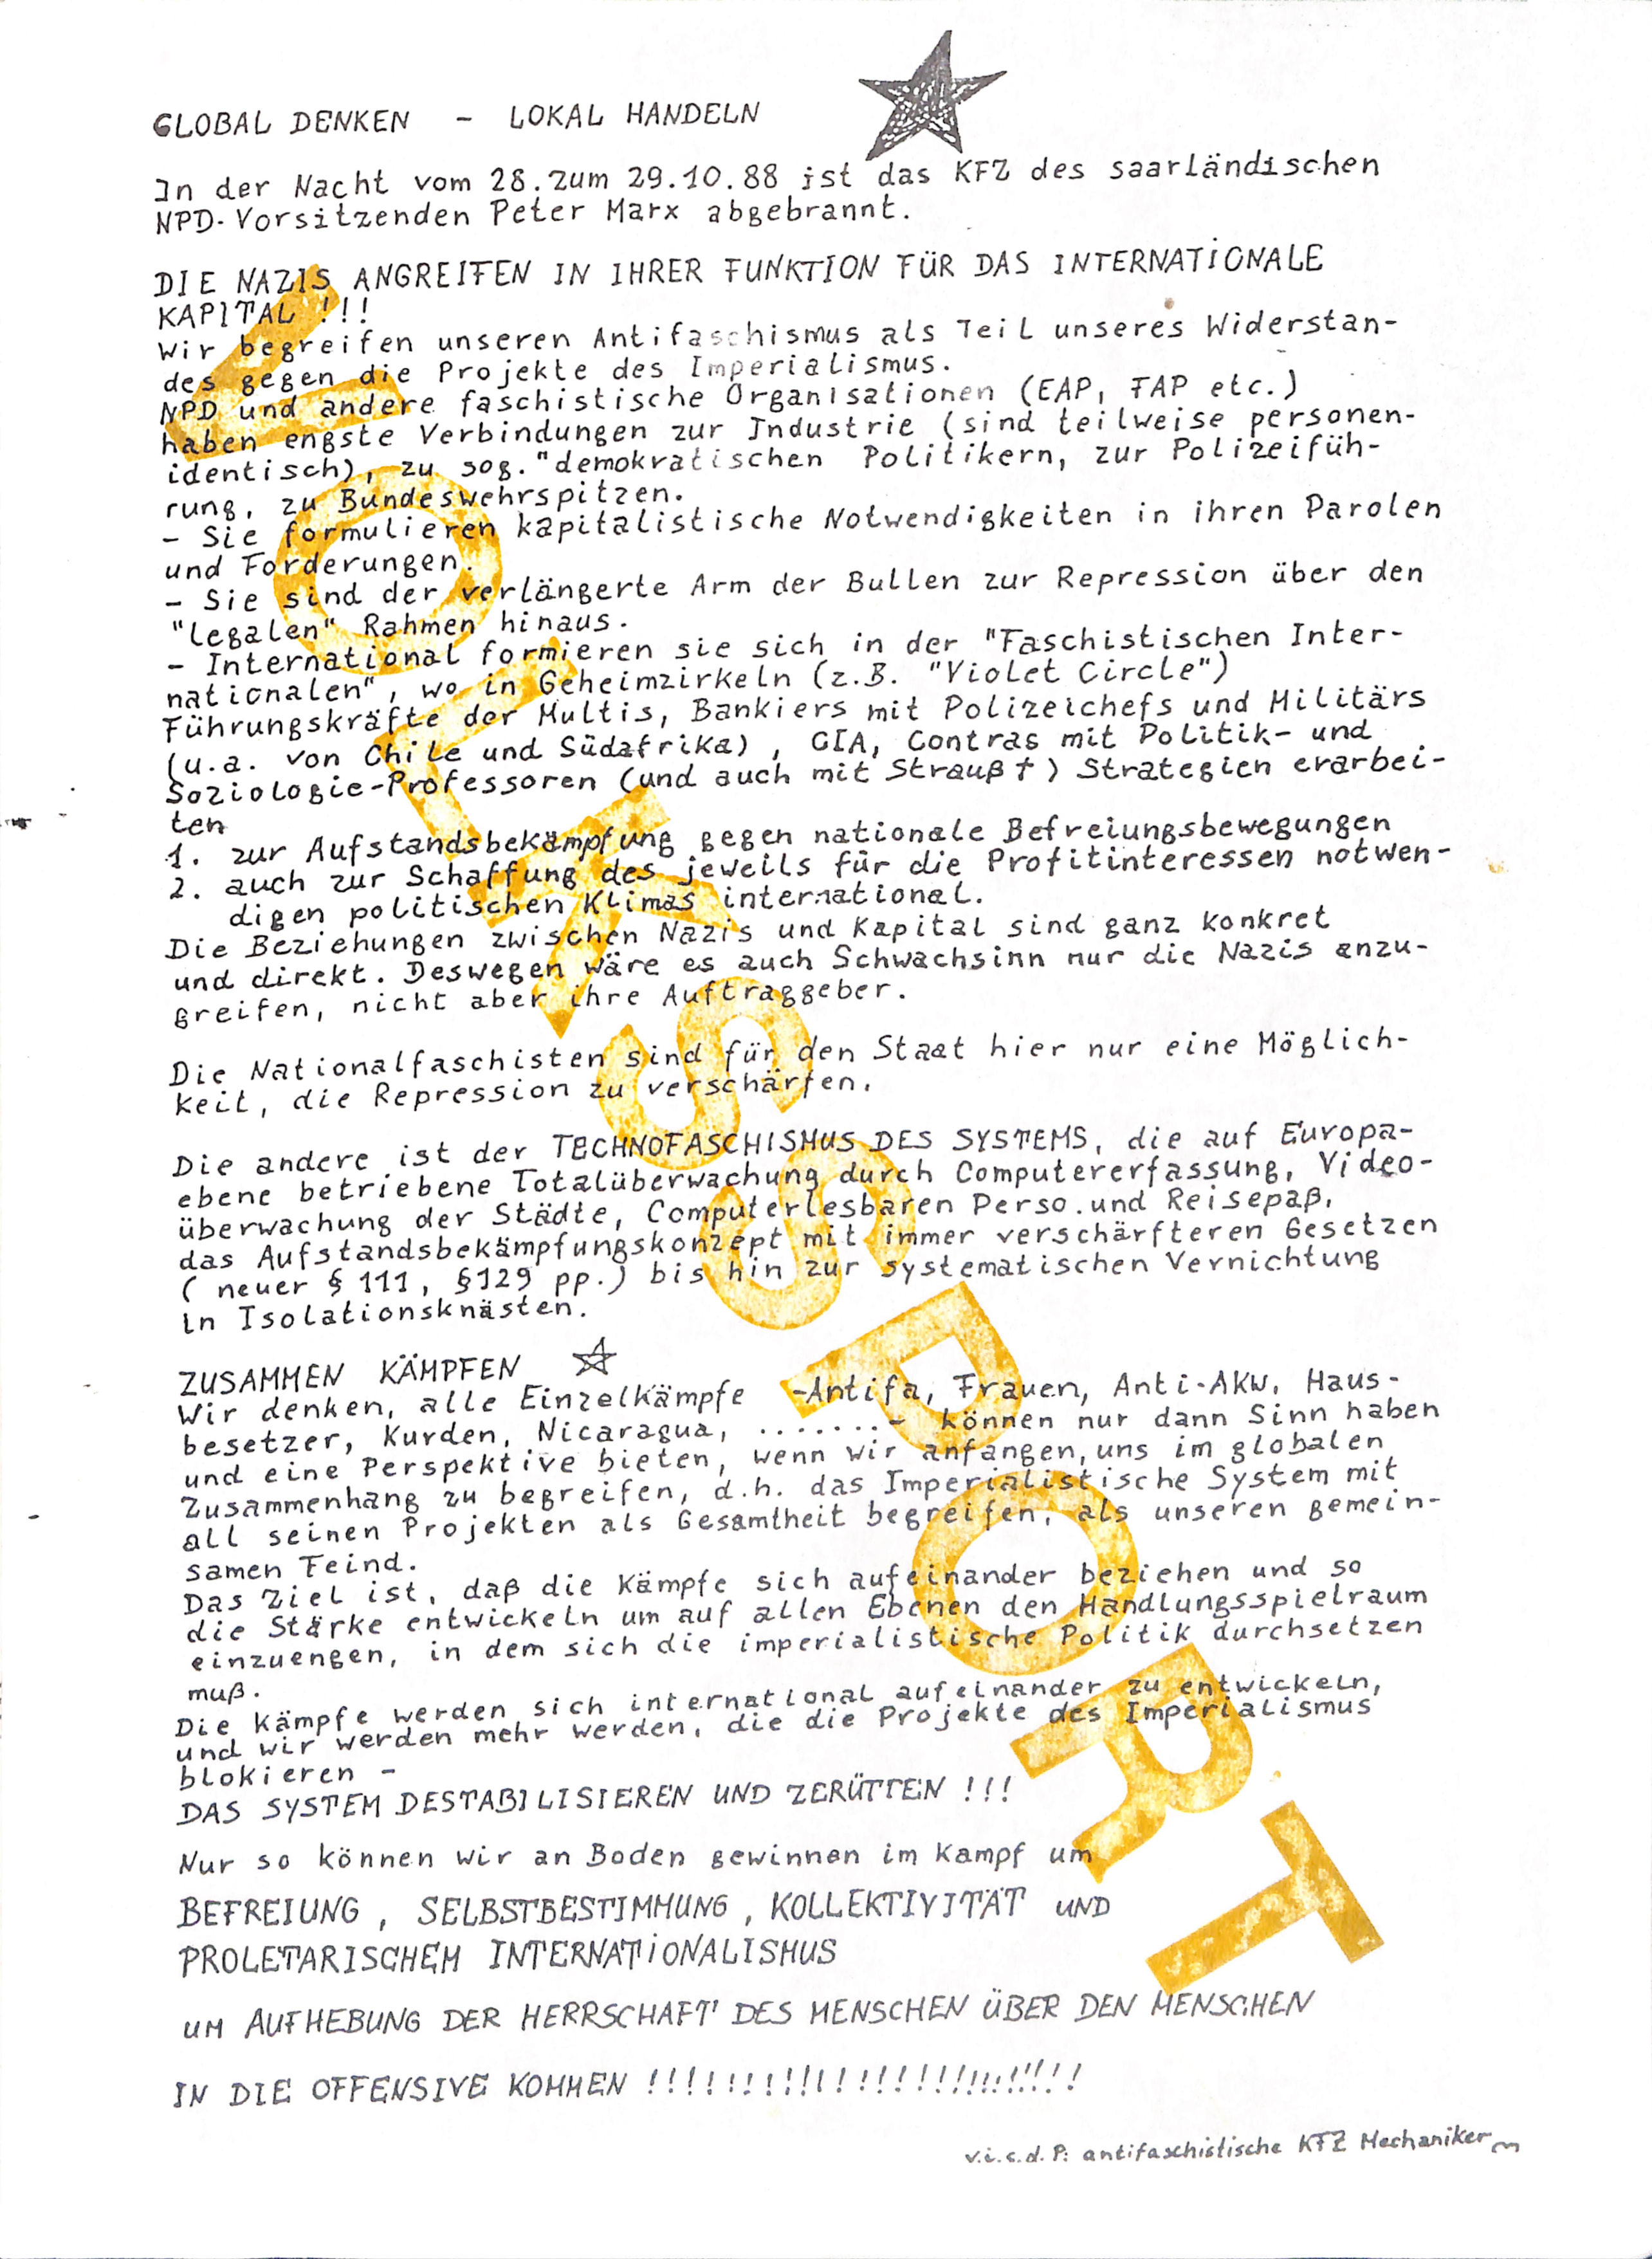 GLOBAL DENKEN - LOKAL HANDELN
In der Nacht vom 28. zum 29.10.88 ist das KFZ des saarländischen
NPD-Vorsitzenden Peter Marx abgebrannt.
DIE NAZIS ANGREIFEN IN IHRER FUNKTION FÜR DAS INTERNATIONALE
KAPITAL !!!
Wir begreifen unseren Antifaschismus als Teil unseres Widerstan-
des gegen die Projekte des Imperialismus.
NPD und andere faschistische Organisationen (EAP, FAP etc.)
haben engste Verbindungen zur Industrie (sind teilweise personen-
identisch), zu sog. "demokratischen Politikern, zur Polizeifüh-
rung, zu Bundeswehrspitzen.
- Sie formulieren kapitalistische Notwendigkeiten in ihren Parolen
und Forderungen.
- Sie sind der verlängerte Arm der Bullen zur Repression über den
"legalen" Rahmen hinaus.
- International formieren sie sich in der "Faschistischen Inter-
nationalen", wo in Geheimzirkeln (z.B. "Violet Circle")
Führungskräfte der Multis, Bankiers mit Polizeichefs und Militärs
(u.a. von Chile und Südafrika), CIA, Contras mit Politik- und
Soziologie-Professoren (und auch mit Strauß †) Strategien erarbei-
ten
1. zur Aufstandsbekämpfung gegen nationale Befreiungsbewegungen
2. auch zur Schaffung des jeweils für die Profitinteressen notwen-
digen politischen Klimas international.
Die Beziehungen zwischen Nazis und Kapital sind ganz konkret
und direkt. Deswegen wäre es auch Schwachsinn nur die Nazis anzu-
greifen, nicht aber ihre Auftraggeber.
Die Nationalfaschisten sind für den Staat hier nur eine Möglich-
keit, die Repression zu verschärfen.
Die andere ist der TECHNOFASCHISMUS DES SYSTEMS, die auf Europa-
ebene betriebene Totalüberwachung durch Computererfassung, Video-
überwachung der Städte, Computerlesbaren Perso. und Reisepaß,
das Aufstandsbekämpfungskonzept mit immer verschärfteren Gesetzen
( neuer § 111, §129 pp.) bis hin zur systematischen Vernichtung
in Isolationsknästen.
ZUSAMMEN KÄMPFEN
Wir denken, alle Einzelkämpfe -Antifa, Frauen, Anti-AKW, Haus-
besetzer, Kurden, Nicaragua, ........- können nur dann Sinn haben
und eine Perspektive bieten, wenn wir anfangen, uns im globalen
Zusammenhang zu begreifen, d.h. das Imperialistische System mit
all seinen Projekten als Gesamtheit begreifen, als unseren gemein-
samen Feind.
Das Ziel ist, daß die Kämpfe sich aufeinander beziehen und so
die Stärke entwickeln um auf allen Ebenen den Handlungsspielraum
einzuengen, in dem sich die imperialistische Politik durchsetzen
muß.
Die Kämpfe werden sich international aufeinander zu entwickeln,
und wir werden mehr werden, die die Projekte des Imperialismus
blokieren -
DAS SYSTEM DESTABILISIEREN UND ZERÜTTEN !!!
Nur so können wir an Boden gewinnen im Kampf um
BEFREIUNG, SELBSTBESTIMMUNG, KOLLEKTIVITÄT UND
PROLETARISCHEM INTERNATIONALISMUS
UM AUFHEBUNG DER HERRSCHAFT DES MENSCHEN ÜBER DEN MENSCHEN
IN DIE OFFENSIVE KOMMEN !!!!!!!!!!!!!!!!!!!!!!!!
v.i.s.d.P: antifaschistische KFZ Mechaniker
VOLKSSPORT